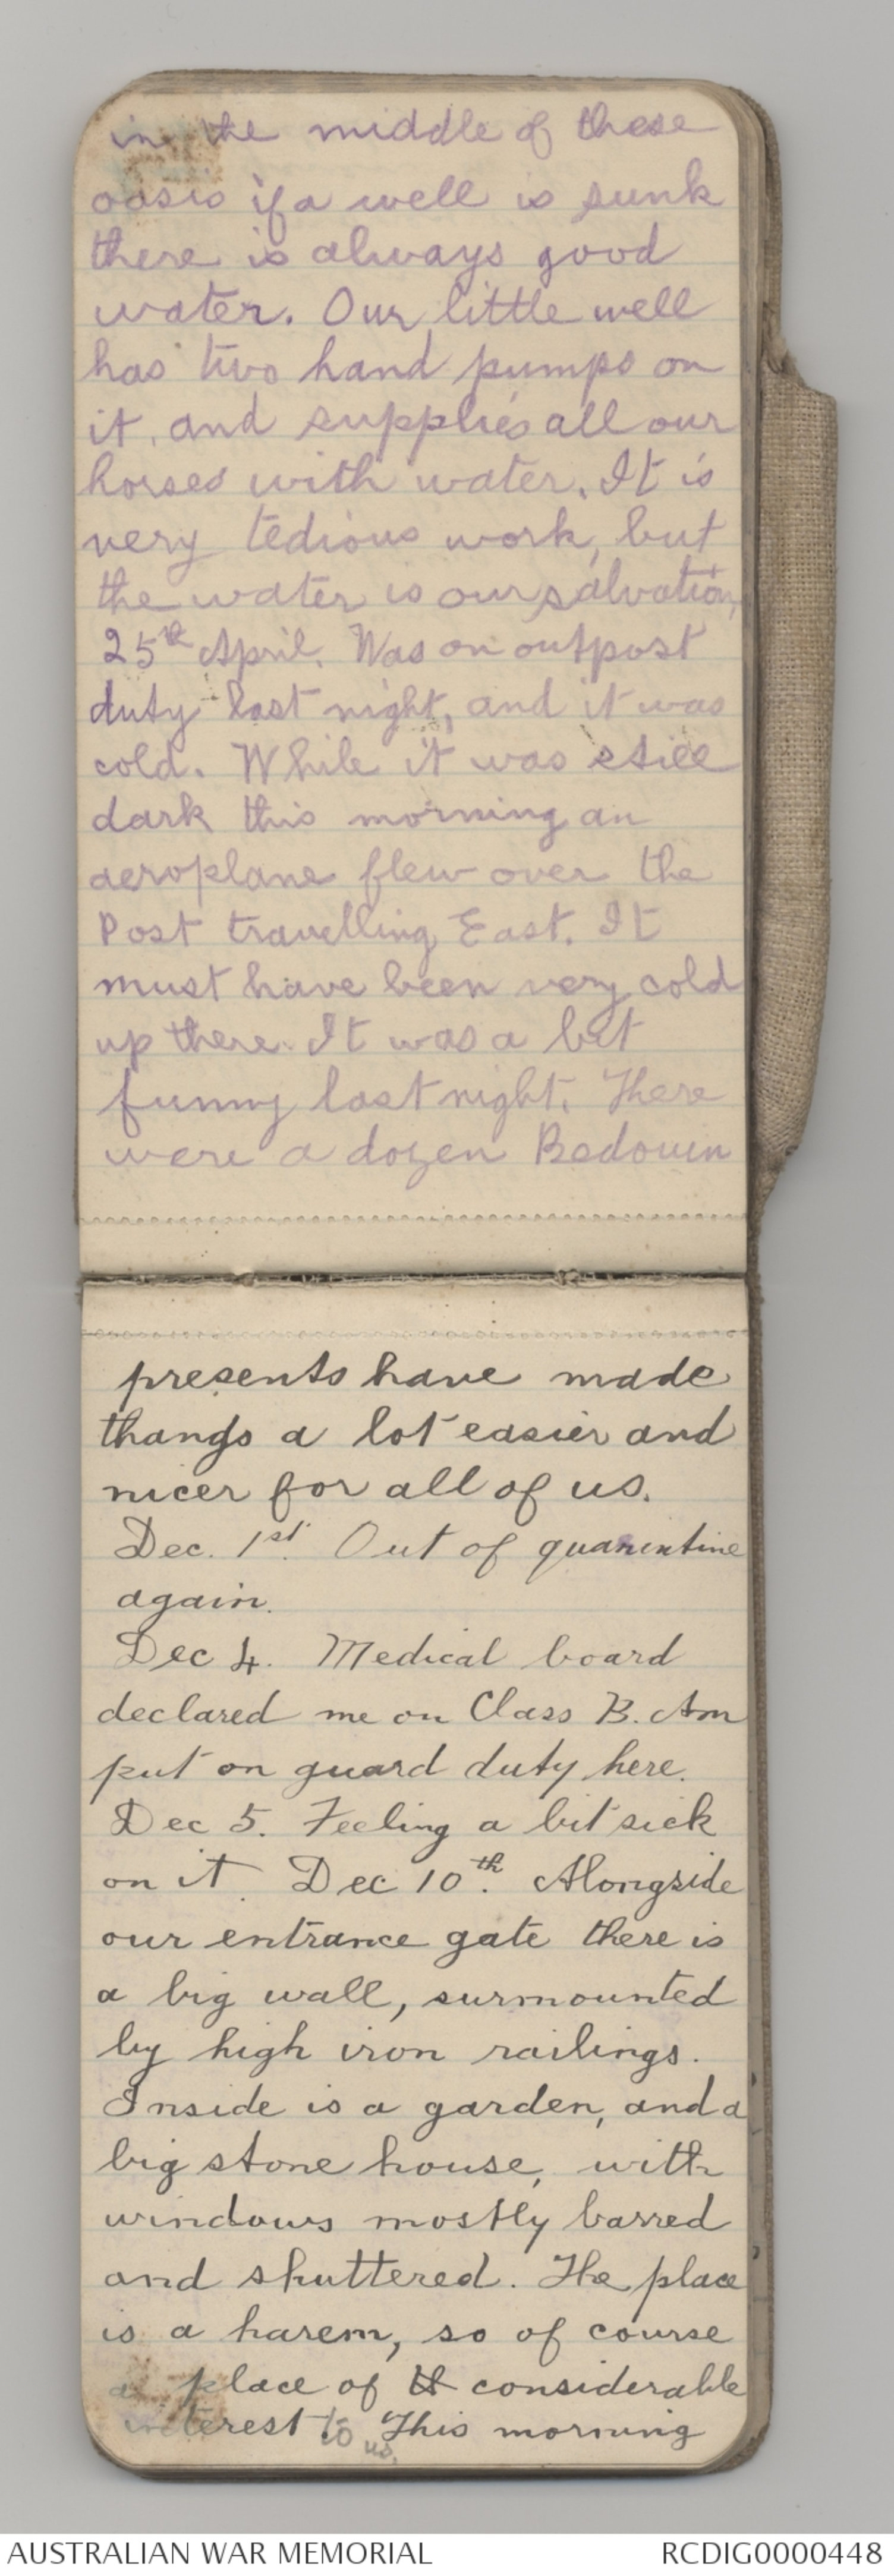 in the middle of these
oasis if a well is sunk
there is always good
water. Our little well
has two hand pumps on
it, and supplies all our
horses with water. It is
very tedious work, but
the water is our salvation,
25th April. Was on outpost
duty last night, and it was
cold. While it was still
dark this morning an
aeroplane flew over the
Post travelling East. It
must have been very cold
up there. It was a bit
funny last night. There
were a dozen Bedouin
presents have made
thangs a lot easier and
nicer for all of us.
Dec. 1st. Out of quarentine
again.
Dec 4. Medical board
declared me on Class B. Am
put on guard duty here.
Dec 5. Feeling a bit sick
on it. Dec 10th. Alongside
our entrance gate there is
a big wall, surmounted
by high iron railings.
Inside is a garden, and a
big stone house, with
windows mostly barred
and shuttered. The place
is a harem, so of course
a place of considerable
interest to us. This morning
AUSTRALIAN WAR MEMORIAL
RCDIG0000448